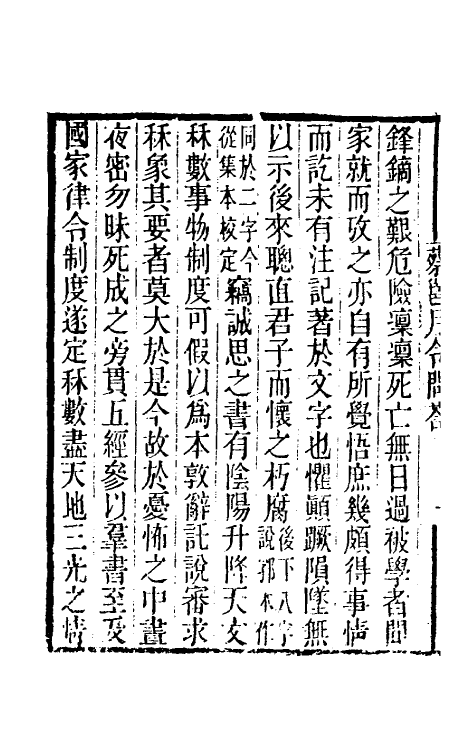 鋒鏑之艱危險稟稟死亡無日過被學者聞
家就而攷之亦自有所覺悟庶幾頗得事情
而訖未有注記著於文字也懼顚蹶隕墜無
以示後來聰直君子而懷之朽腐後下八字
說郛本作
同於二字今
從集本校定竊誠思之書有陰陽升降天文
秝數事物制度可假以爲本敦辭託說審求
秝象其要者莫大於是今故於憂怖之中晝
夜密勿昧死成之旁貫五經參以羣書至及
國家律令制度遂定秝數盡天地三光之情
蔡邕月令問答